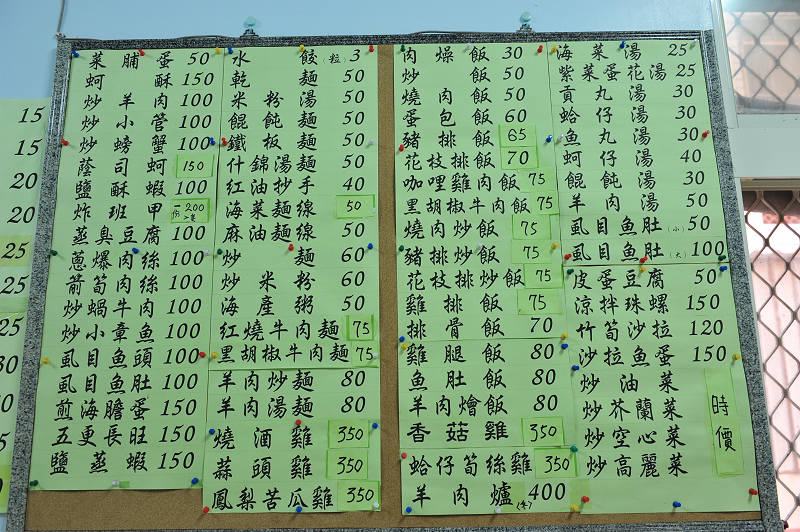 15
15
20
20
25
25
25
30
菜脯蛋 50
蚵酥 150
炒羊肉 100
炒小管 100
炒螃蟹 100
蔭司蚵 150
鹽酥蝦 100
炸班甲 一份200
蒸臭豆腐 100
蔥爆肉絲 100
箭筍肉絲 100
炒蝸牛肉 100
炒小章魚 100
虱目魚頭 100
虱目魚肚 100
煎海膽蛋 150
五更長旺 150
鹽蒸蝦 150
水餃(粒) 3
乾麵 50
米粉湯 50
餛飩麵 50
鐵板麵 50
什錦湯麵 50
紅油抄手 40
海菜麵線 50
麻油麵線 50
炒麵 60
炒米粉 60
海產粥 50
紅燒牛肉麵 75
黑胡椒牛肉麵 75
羊肉炒麵 80
羊肉湯麵 80
燒酒雞 350
蒜頭雞 350
鳳梨苦瓜雞 350
肉燥飯 30
炒飯 50
燒肉飯 50
蛋包飯 60
豬排飯 65
花枝排飯 70
咖哩雞肉飯 75
黑胡椒牛肉飯 75
燒肉炒飯 75
豬排炒飯 75
花枝排炒飯 75
雞排飯 75
排骨飯 70
雞腿飯 80
魚肚飯 80
羊肉燴飯 80
香菇雞 350
蛤仔筍絲雞 350
羊肉爐 400
海菜湯 25
紫菜蛋花湯 25
貢丸湯 30
蛤仔湯 30
魚丸湯 30
蚵仔湯 40
餛飩湯 30
羊肉湯 50
虱目魚肚(小) 50
虱目魚肚(大) 100
皮蛋豆腐 50
涼拌珠螺 150
竹筍沙拉 120
沙拉魚蛋 150
炒油菜
炒芥蘭菜
炒空心菜
炒高麗菜
時價